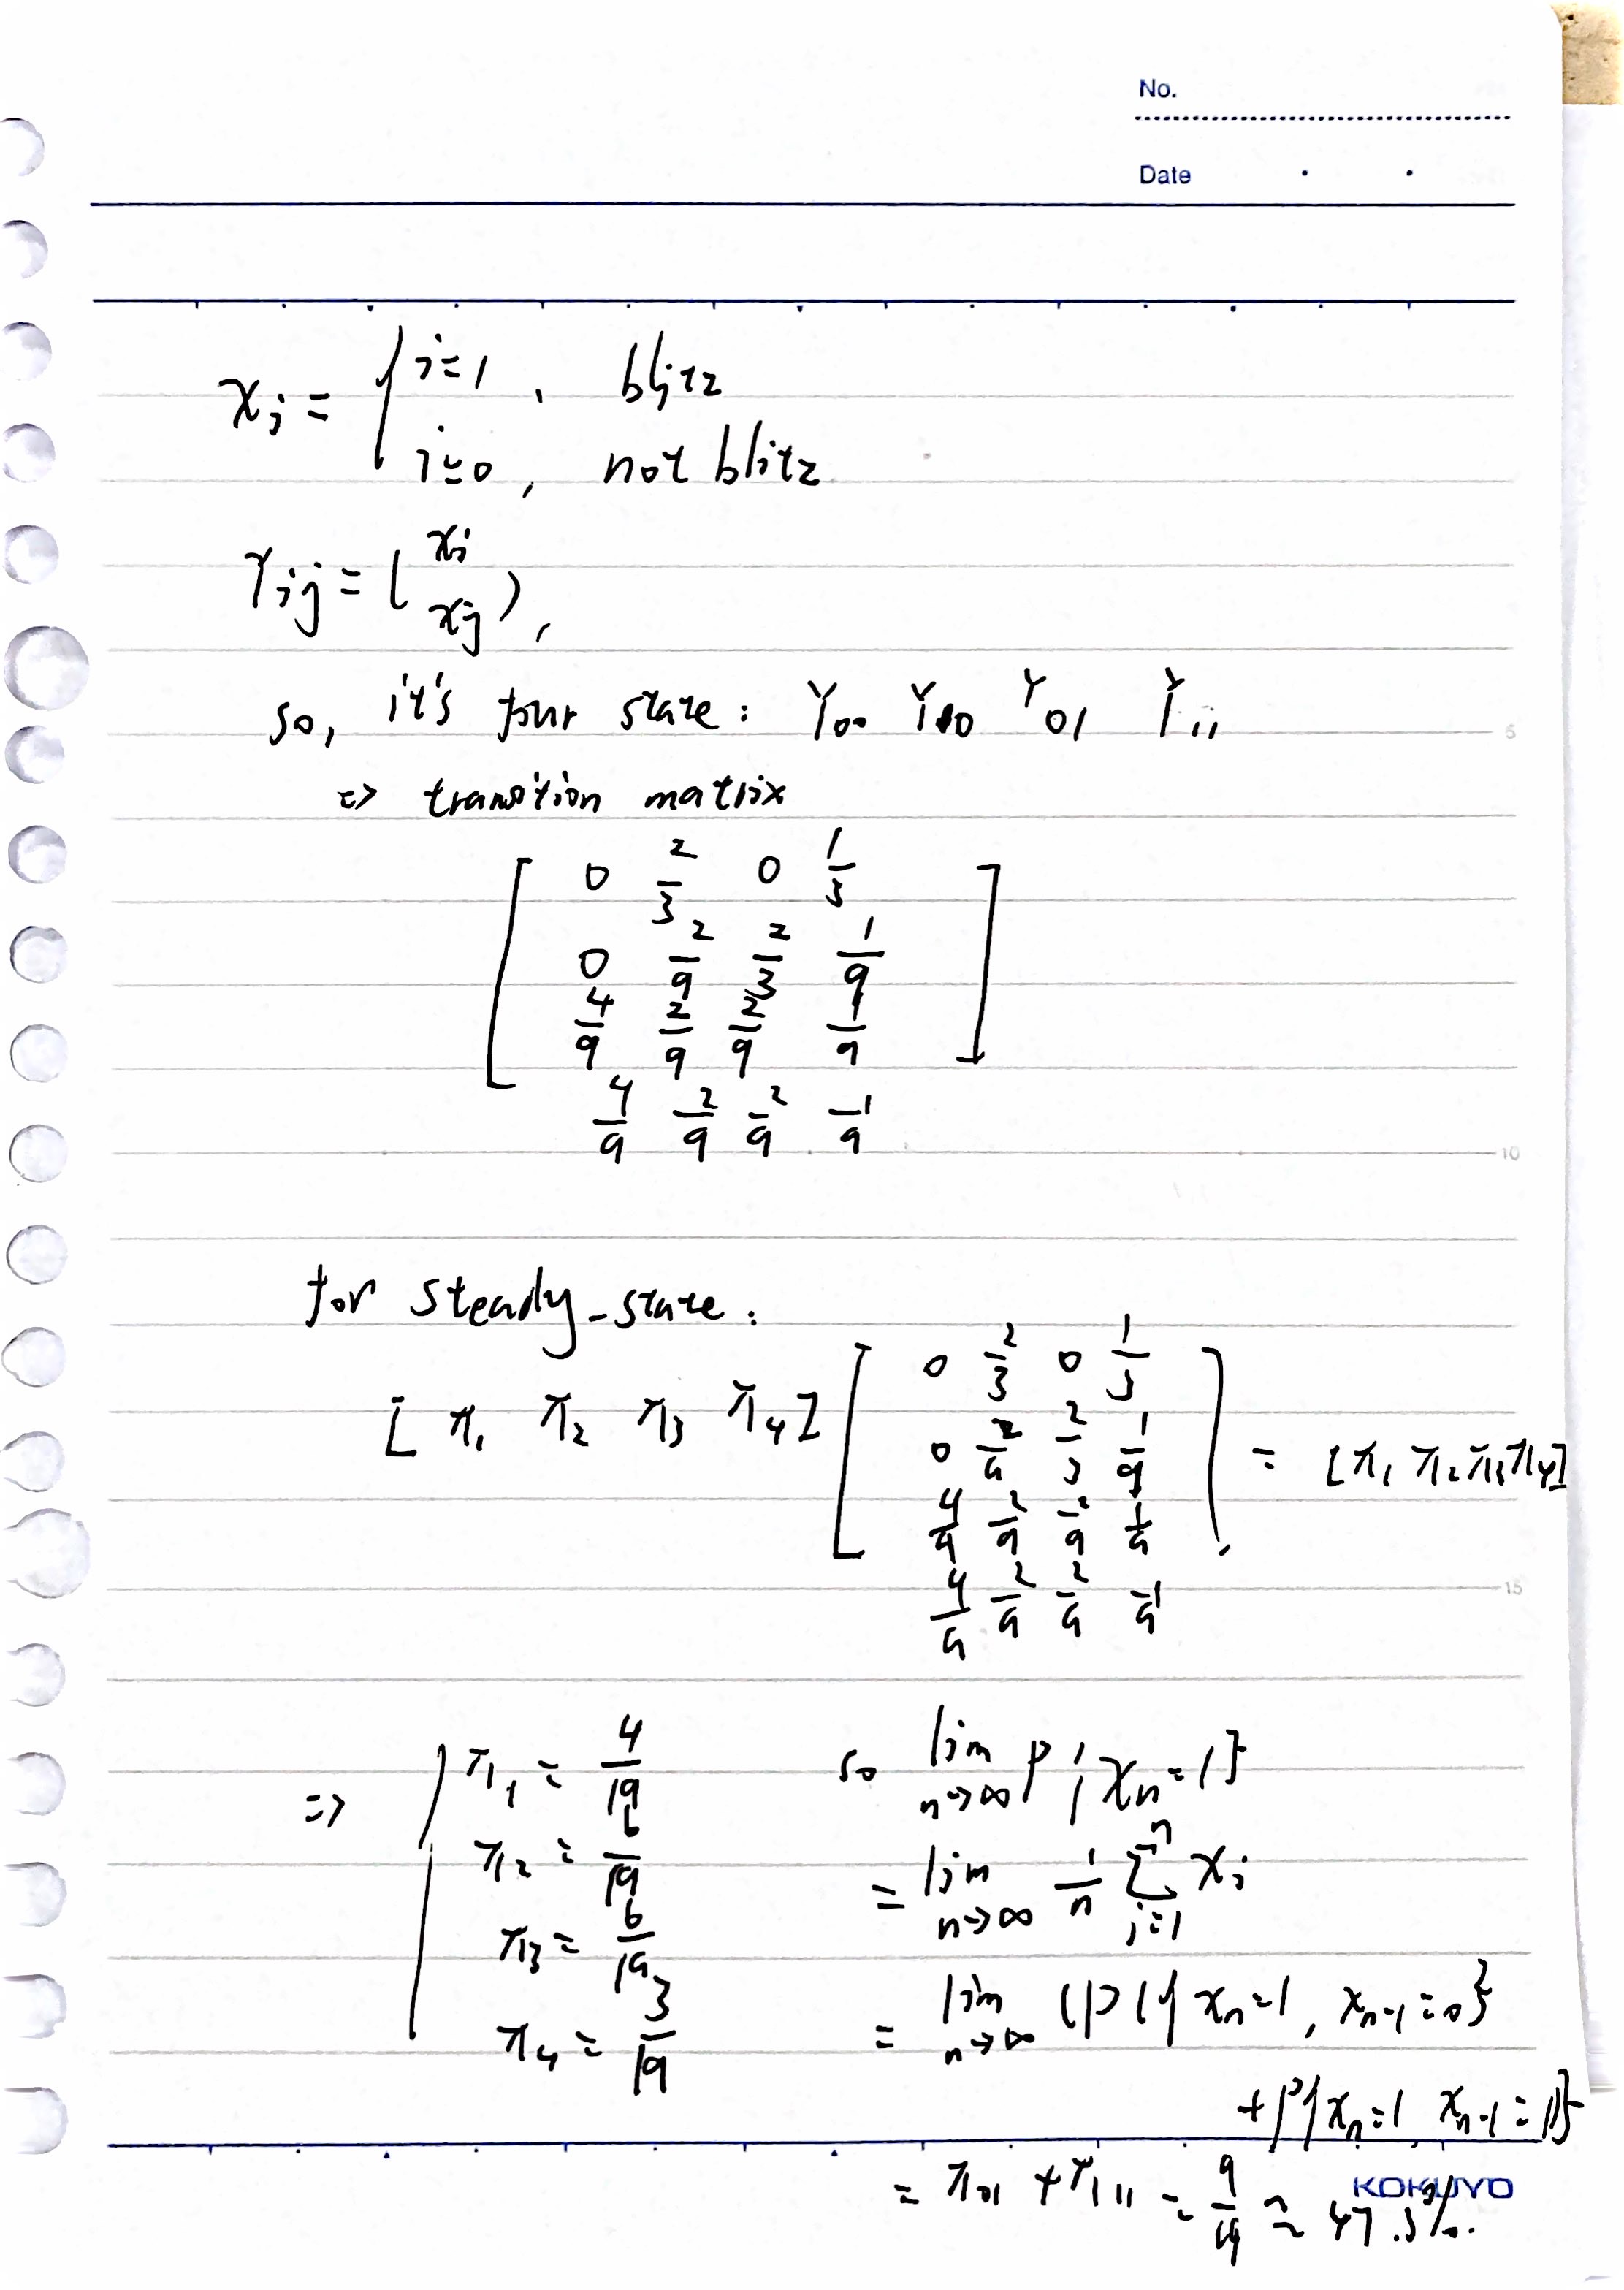 No.
Date
x_i = { i=1, blitz
i=0, not blitz
Y_ij = (x_i
x_j),
so, it's four state: Y_00 Y_10 Y_01 Y_11
=> transition matrix
[ 0 2/3 0 1/3
0 2/9 2/3 1/9
4/9 2/9 2/9 1/9
4/9 2/9 2/9 1/9 ]
for steady-state:
[π_1 π_2 π_3 π_4] [ 0 2/3 0 1/3
0 2/9 2/3 1/9
4/9 2/9 2/9 1/9
4/9 2/9 2/9 1/9 ] = [π_1 π_2 π_3 π_4]
=> { π_1 = 4/19
π_2 = 6/19
π_3 = 6/19
π_4 = 3/19
so lim n→∞ P{x_n=1}
= lim n→∞ 1/n Σ_{i=1}^{n} x_i
= lim n→∞ (P{x_n=1, x_{n-1}=0}
+ P{x_n=1 x_{n-1}=1})
= π_01 + π_11 = 9/19 ≈ 47.3%.
KOKUYO
5
10
15